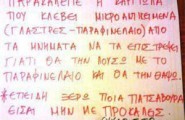 ΠΑΡΑΚΑΛΕΙΤΕ Η ΚΑΡΓΙΟΛΑ
ΠΟΥ ΚΛΕΒΕΙ ΜΙΚΡΟΑΝΤΙΚΕΙΜΕΝΑ
(ΓΛΑΣΤΡΕΣ-ΠΑΡΑΦΙΝΕΛΑΙΟ) ΑΠΟ
ΤΑ ΜΝΗΜΑΤΑ ΝΑ ΤΑ ΕΠΙΣΤΡΕΨΕΙ
ΓΙΑΤΙ ΘΑ ΤΗΝ ΛΟΥΣΩ ΜΕ ΤΟ
ΠΑΡΑΦΙΝΕΛΑΙΟ ΚΑΙ ΘΑ ΤΗΝ ΘΑΨΩ.
*ΕΠΕΙΔΗ ΞΕΡΩ ΠΟΙΑ ΠΑΤΣΑΒΟΥΡΑ
ΕΙΣΑΙ ΜΗΝ ΜΕ ΠΡΟΚΑΛΕΣ